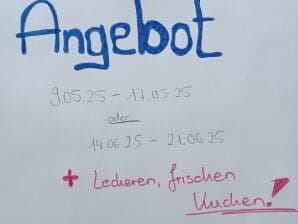 Angebot
9.05.25 – 17.05.25
oder
14.06.25 – 21.06.25
+ Leckeren, frischen
Kuchen!